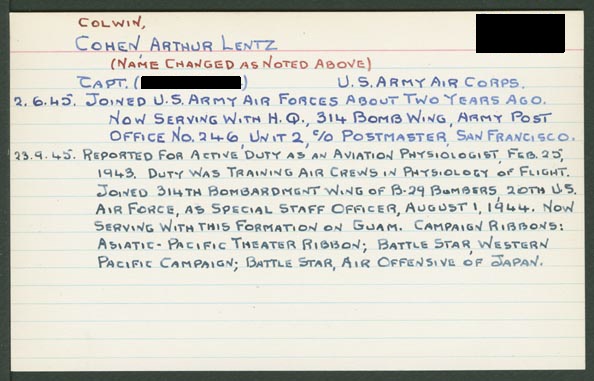 COLWIN,
COHEN ARTHUR LENTZ
(NAME CHANGED AS NOTED ABOVE)
CAPT. ( ) U.S. ARMY AIR CORPS.
2.6.45. JOINED U.S. ARMY AIR FORCES ABOUT TWO YEARS AGO.
NOW SERVING WITH H.Q., 314 BOMB WING, ARMY POST
OFFICE NO. 246, UNIT 2, c/o POSTMASTER, SAN FRANCISCO.
23.9.45. REPORTED FOR ACTIVE DUTY AS AN AVIATION PHYSIOLOGIST, FEB. 25,
1943. DUTY WAS TRAINING AIR CREWS IN PHYSIOLOGY OF FLIGHT.
JOINED 314TH BOMBARDMENT WING OF B-29 BOMBERS, 20TH U.S.
AIR FORCE, AS SPECIAL STAFF OFFICER, AUGUST 1, 1944. NOW
SERVING WITH THIS FORMATION ON GUAM. CAMPAIGN RIBBONS:
ASIATIC-PACIFIC THEATER RIBBON; BATTLE STAR, WESTERN
PACIFIC CAMPAIGN; BATTLE STAR, AIR OFFENSIVE OF JAPAN.